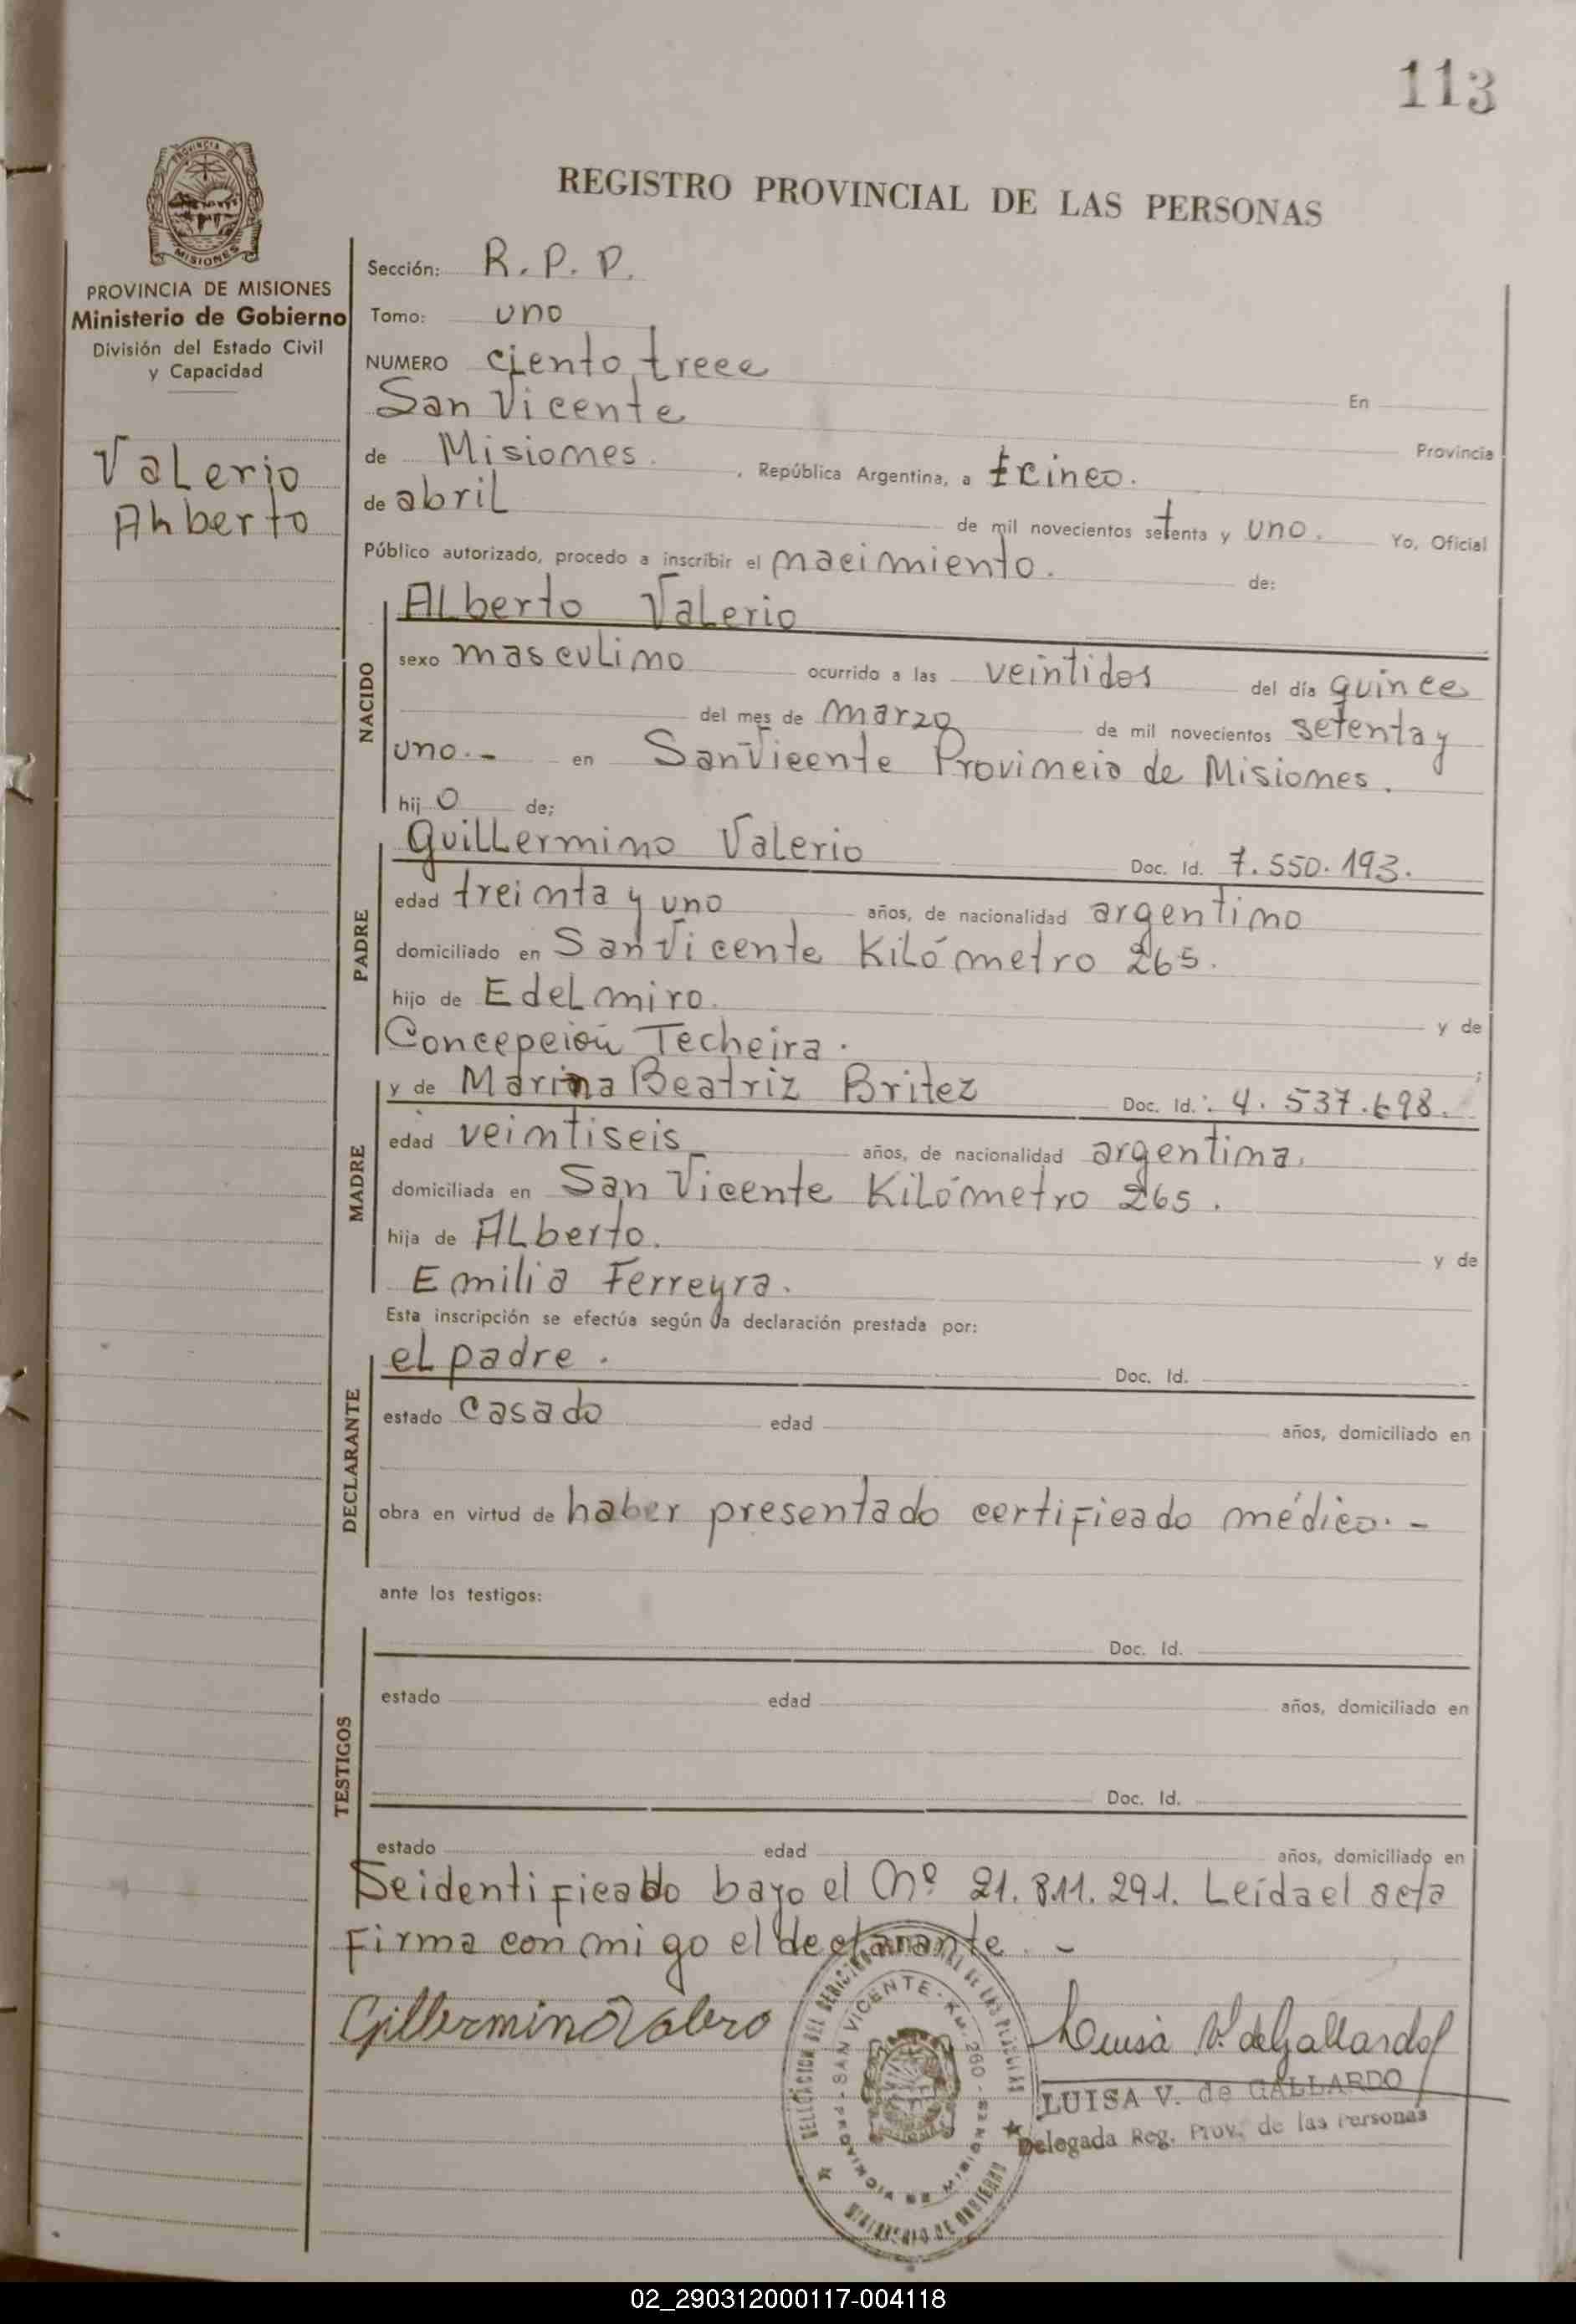 113
REGISTRO PROVINCIAL DE LAS PERSONAS
PROVINCIA DE
MISIONES
PROVINCIA DE MISIONES
Ministerio de Gobierno
División del Estado Civil
y Capacidad
Valerio
Ahberto
Sección: R. P. P.
Tomo: uno
NUMERO ciento trece
En
San Vicente
Provincia
de Misiones. , República Argentina, a cinco.
de abril de mil novecientos setenta y uno. Yo, Oficial
Público autorizado, procedo a inscribir el nacimiento. de:
NACIDO
Alberto Valerio
sexo masculino ocurrido a las veintidos del día quince
del mes de marzo de mil novecientos setenta y
uno.- en San Vicente Provincia de Misiones.
hij o de;
PADRE
Guillermino Valerio Doc. Id. 7.550.193.
edad treinta y uno años, de nacionalidad argentino
domiciliado en San Vicente Kilómetro 265.
hijo de Edelmiro. y de
Concepción Techeira. ;
MADRE
y de Marina Beatriz Britez Doc. Id. 4.537.698.
edad veintiseis años, de nacionalidad argentina.
domiciliada en San Vicente Kilómetro 265.
hija de Alberto. y de
Emilia Ferreyra.
Esta inscripción se efectúa según la declaración prestada por:
DECLARANTE
el padre. Doc. Id.
estado casado edad años, domiciliado en
obra en virtud de haber presentado certificado médico.-
ante los testigos:
TESTIGOS
Doc. Id.
estado edad años, domiciliado en
Doc. Id.
estado edad años, domiciliado en
Se identificado bajo el Nº 21.811.291. Leída el acta
Firma conmigo el declarante.-
Gillermino Valero
SAN VICENTE - KM. 260
PROVINCIA DE MISIONES
MINISTERIO DE GOBIERNO
Luisa V. de Gallardo
LUISA V. de GALLARDO
Delegada Reg. Prov. de las Personas
02_290312000117-004118